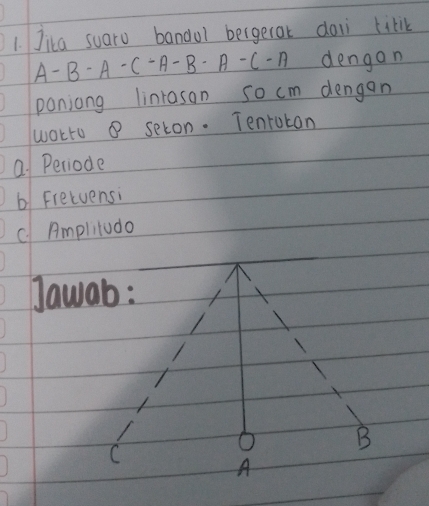 1. Jika suatu bandul bergerak dari titik
A-B-A-C-A-B-A-C-A dengan
panjang lintasan 50 cm dengan
waktu 8 sekon. Tentukan
a. Periode
b. Frekuensi
c. Amplitudo
Jawab:
C
B
A